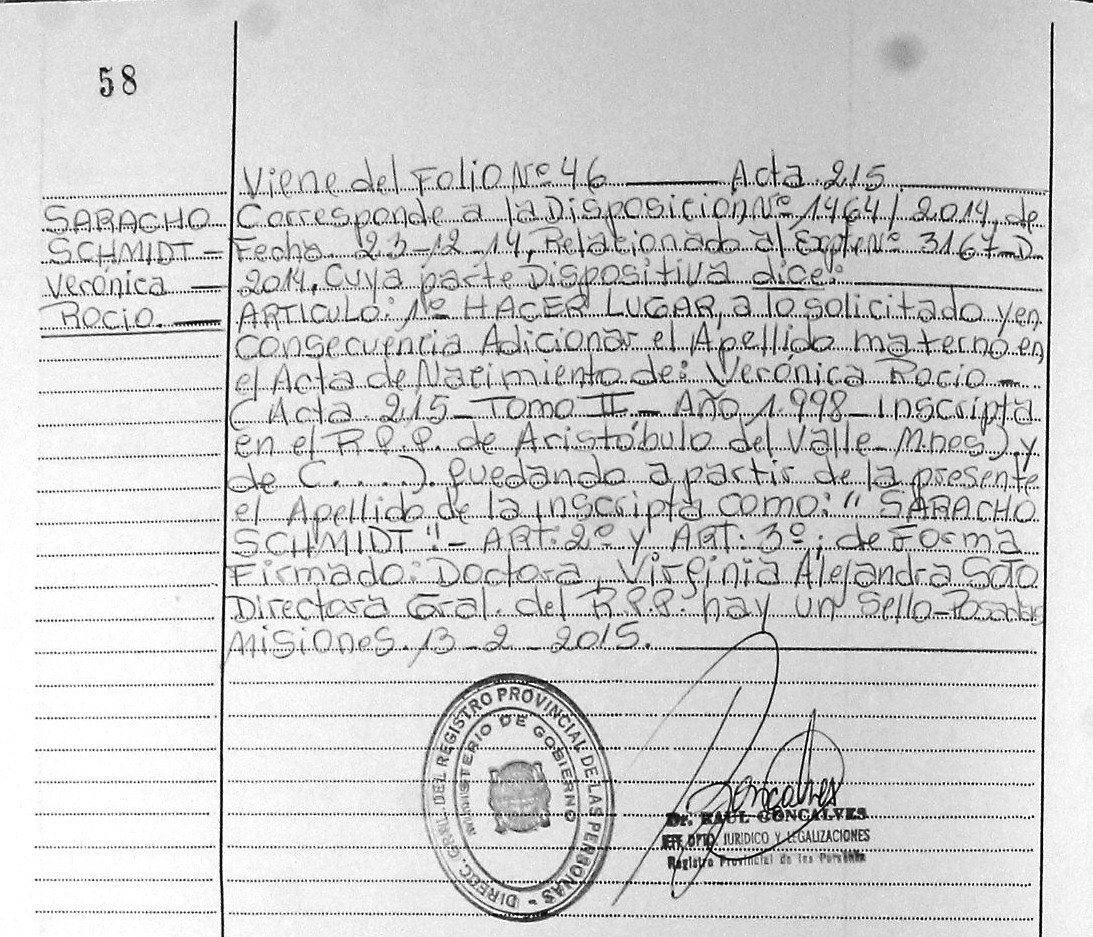 58
Viene del Folio Nº 46 Acta 215
SARACHO
SCHMIDT -
Verónica
Rocio.
Corresponde a la Disposición Nº 1464/2014, de
Fecha 23-12-14, Relacionado al Expte Nº 3167-D
2014, Cuya parte Dispositiva dice:
ARTICULO: 1º HACER LUGAR, a lo solicitado y en
Consecuencia Adicionar el Apellido materno en
el Acta de Nacimiento de: Verónica Rocio -
(Acta 215 - Tomo II - Año 1.998 - Inscripta
en el R.P.P. de Aristóbulo del Valle - Mnes), y
de C.....). Quedando a partir de la presente
el Apellido de la inscripta como: " SARACHO
SCHMIDT " - ART: 2º y ART: 3º; de Forma
Firmado: Doctora, Virginia Alejandra Soto
Directora Gral. del R.P.P. hay un Sello - Posadas
Misiones. 13 - 2 - 2015.
DIREEC. GRAL. DEL REGISTRO PROVINCIAL DE LAS PERSONAS -
MINISTERIO DE GOBIERNO
Goncalves
Dr. RAUL GONCALVES
DPTO. JURIDICO Y LEGALIZACIONES
Registro Provincial de las Personas